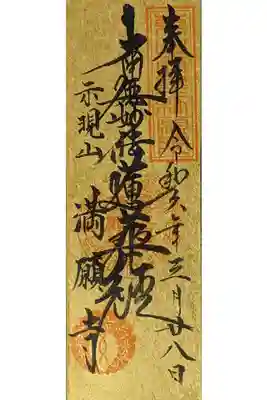 奉拝 令和六年三月廿八日
南無妙法蓮華経
示現山 満願寺